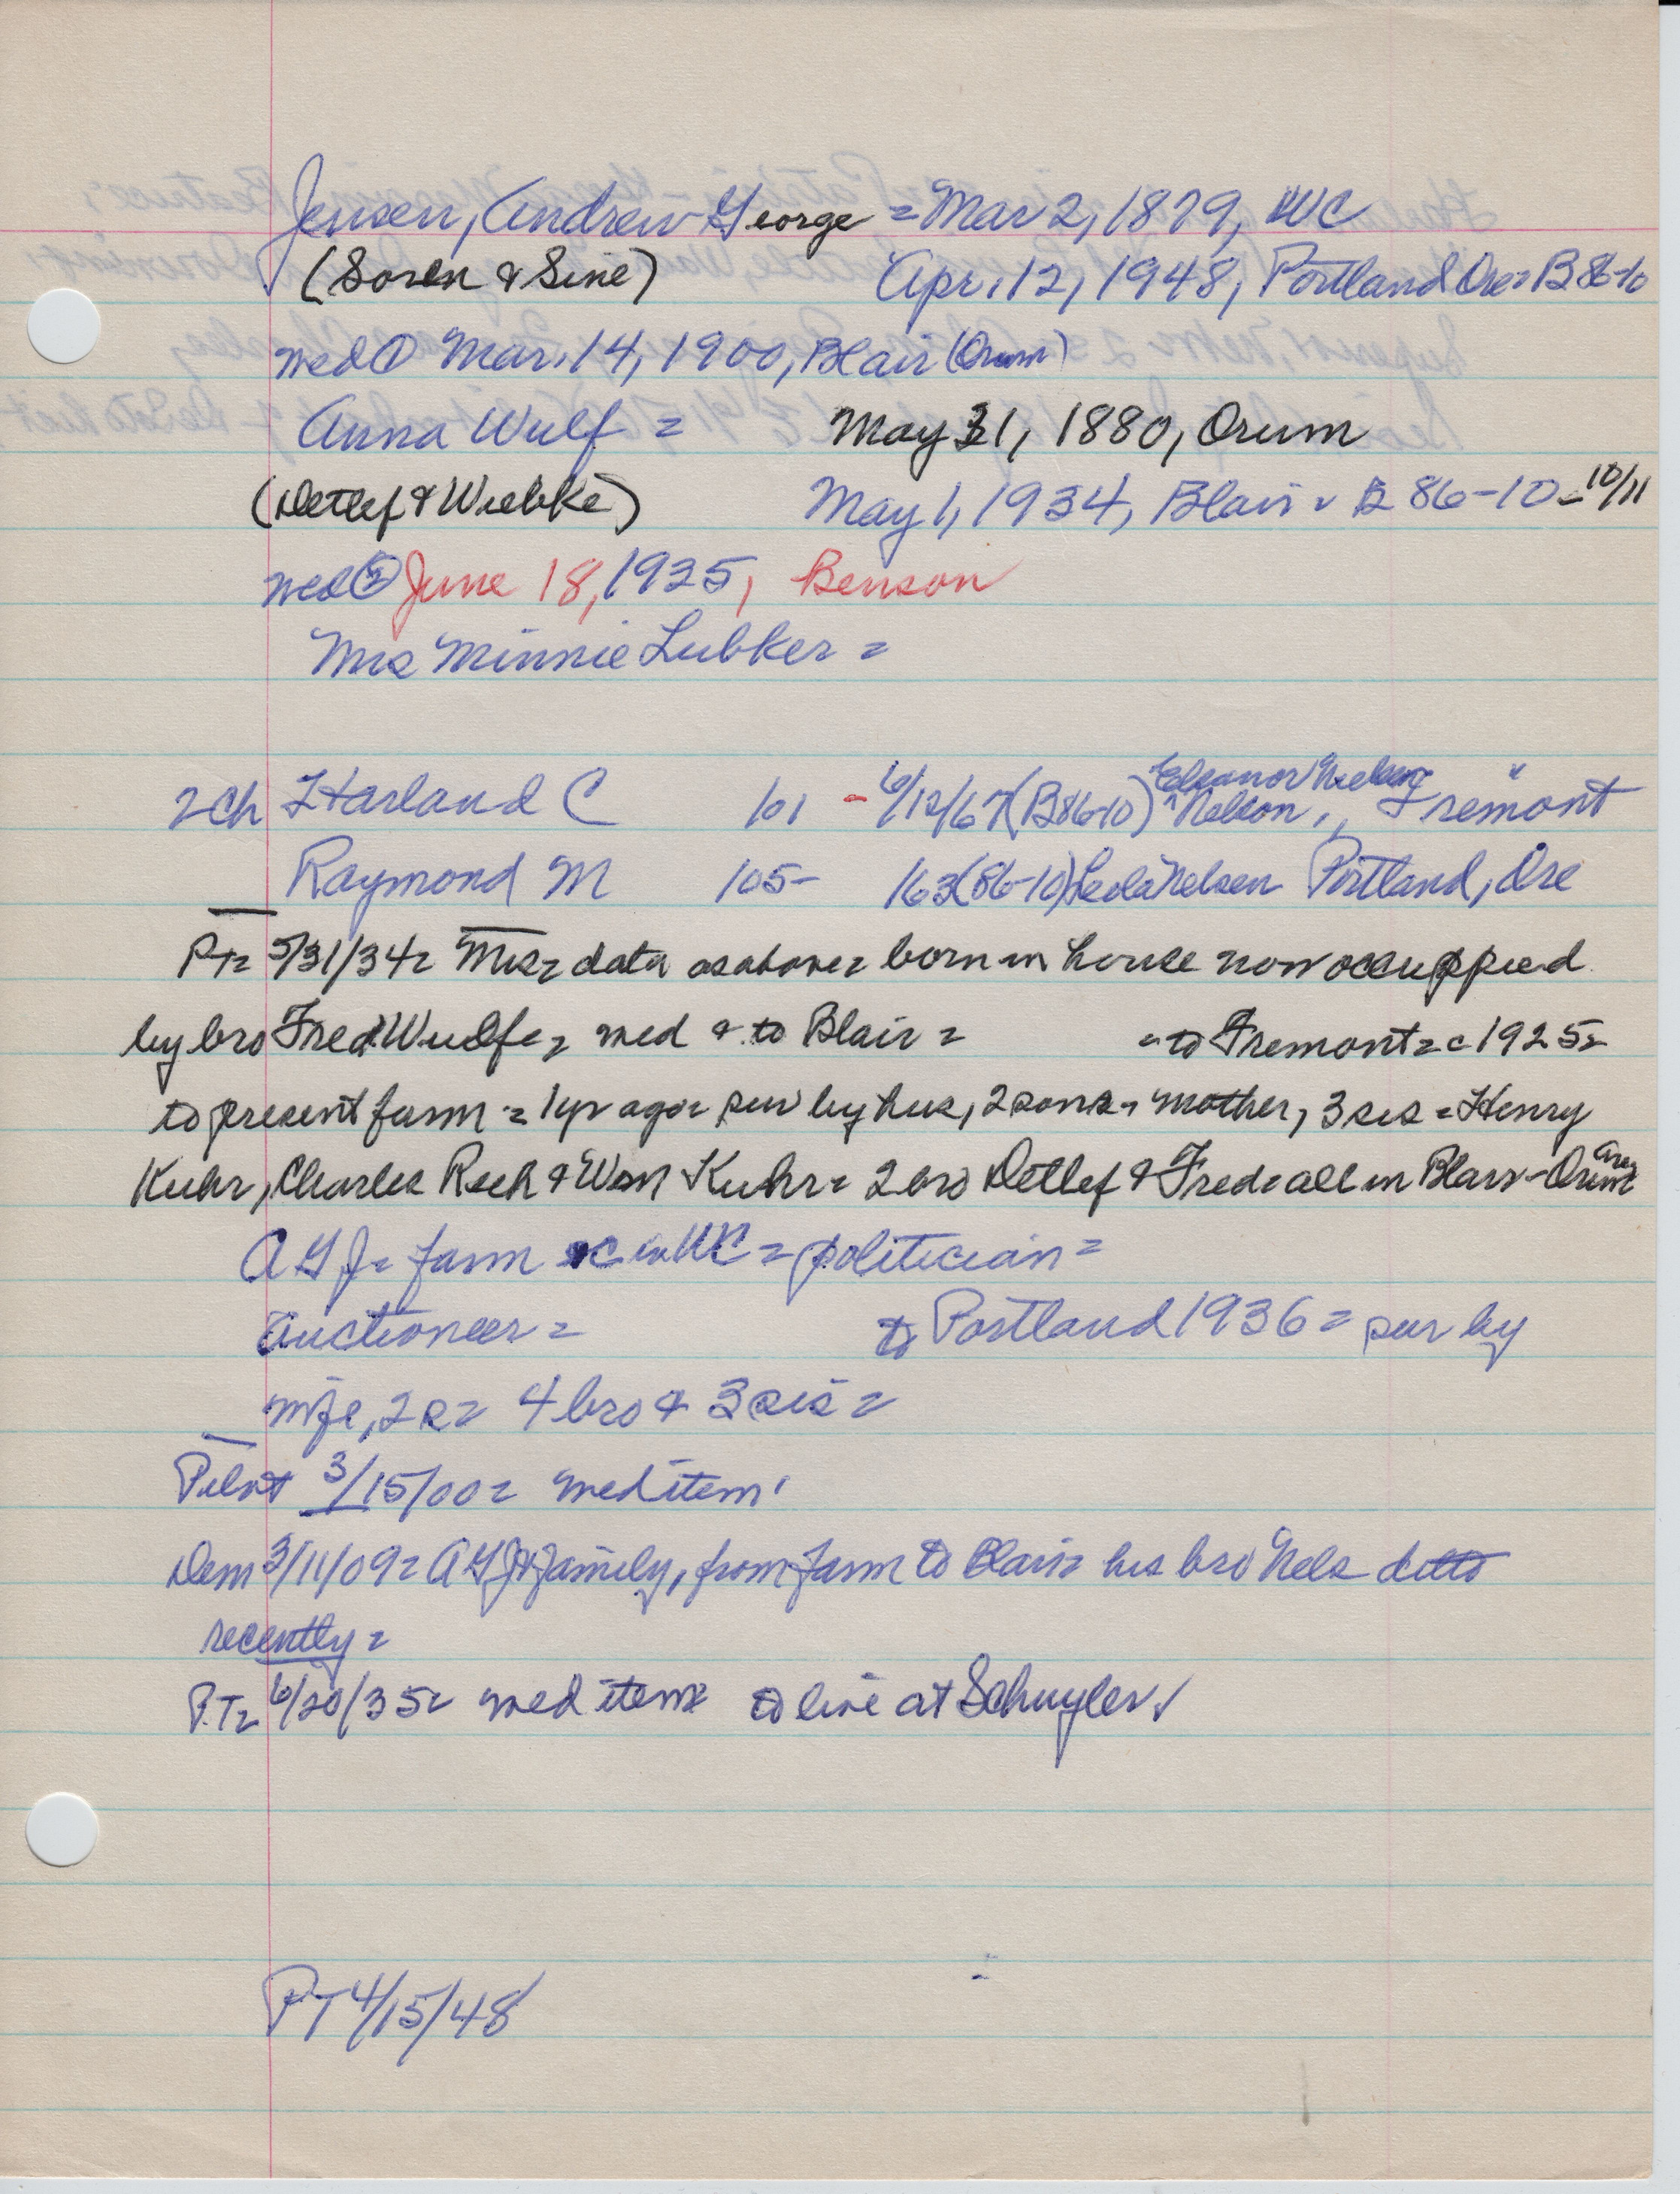 Jensen, Andrew George = Mar 2, 1879, WC
(Soren & Sine) Apr. 12, 1948, Portland Ore = B 86-10
wed ① Mar. 14, 1900, Blair (Orum)
Anna Wulf = May 31, 1880, Orum
(Detlef & Wiebke) May 1, 1934, Blair = B 86-10 - 10/11
wed ② June 18, 1935, Benson
Mrs Minnie Lubker =
2 ch Harland C 101 - 6/12/67 (B86-10) Eleanor Nelson, Fremont
Raymond M 105- 163 (86-10) Leola Nelsen Portland, Ore
PT= 5/31/34= Mrs= data as above= born in house now occuppied
by bro Fred Wulf= = wed & to Blair = = to Fremont = c 1925=
to present farm = 1 yr ago= sur by hus, 2 sons = mother, 3 sis = Henry
Kuhr, Charles Reeh & Wm Kuhr= 2 bro Detlef & Fred= all in Blair-Orum area
A G J= farm in WC = politician =
Auctioneer = to Portland 1936 = sur by
wife, 2 s= 4 bro & 3 sis =
Pilot 3/15/00 = wed item
Dem 3/11/09= A G J & family, from farm to Blair= his bro Nels ditto
recently =
P.T= 6/20/35= wed item= to live at Schuyler
PT 4/15/48